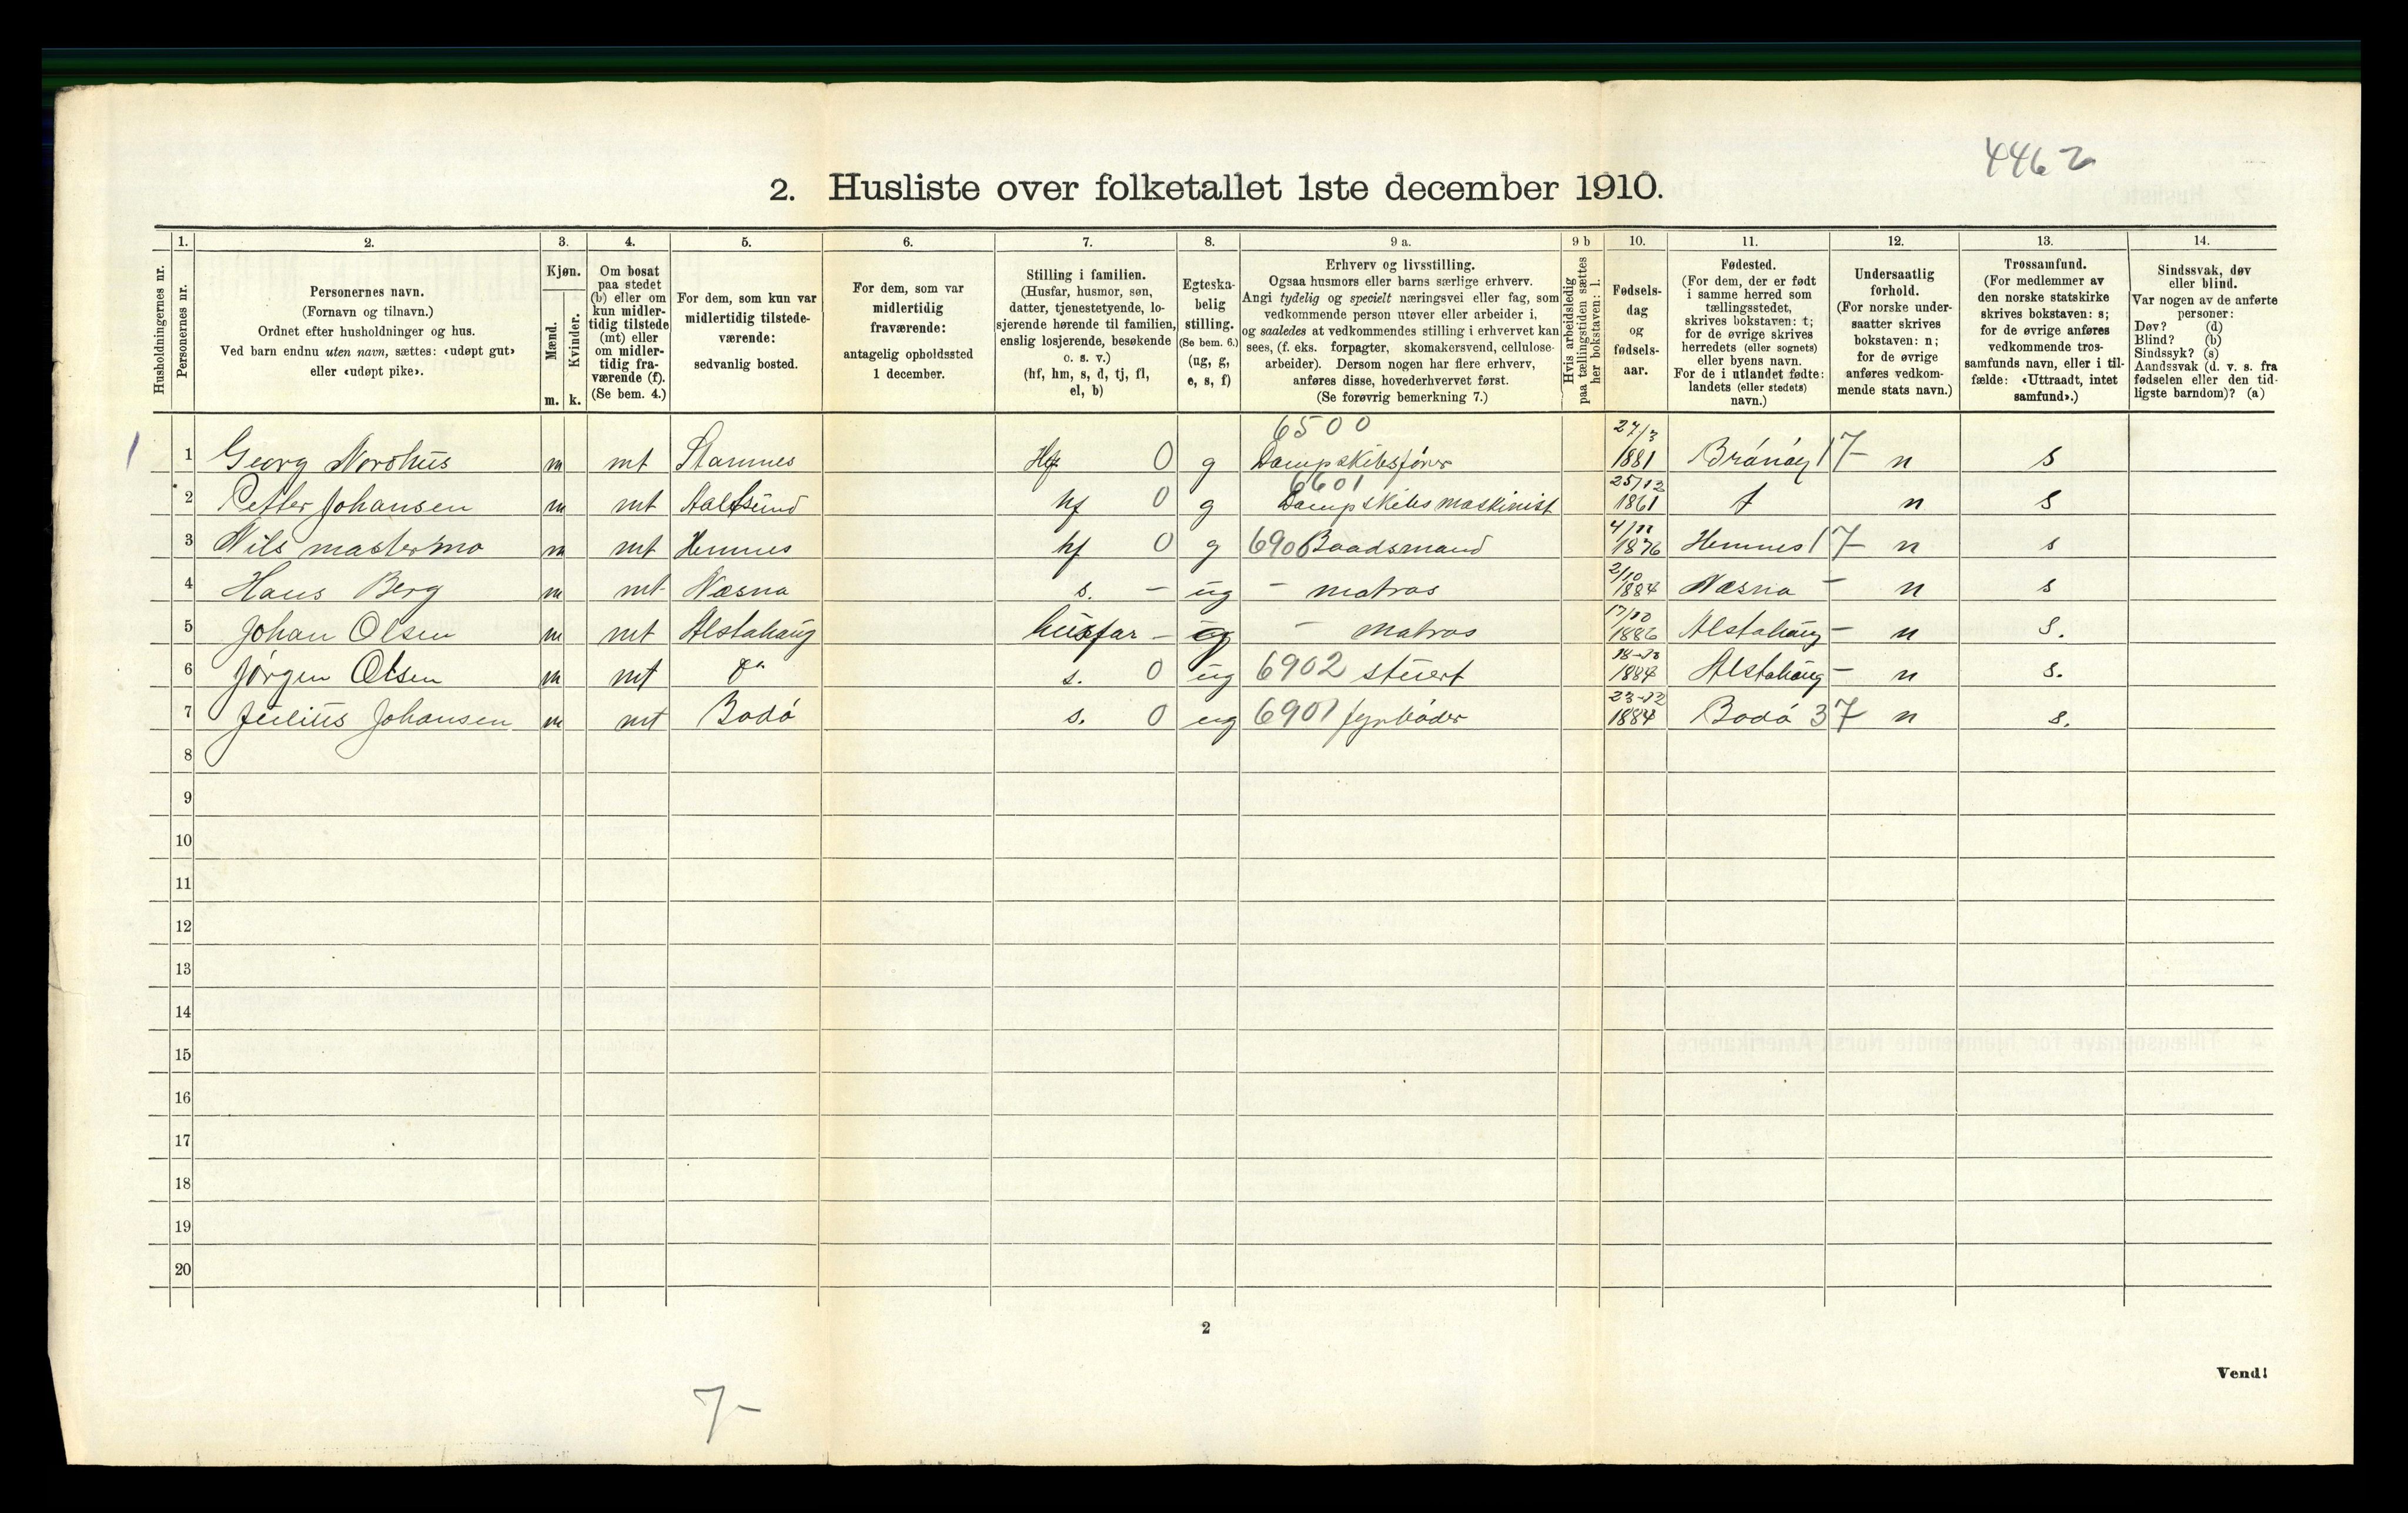 4462
2. Husliste over folketallet 1ste december 1910.
1. 2. 3. 4. 5. 6. 7. 8. 9 a. 9 b 10. 11. 12. 13. 14.
Husholdningernes nr.
Personernes nr.
Personernes navn.
(Fornavn og tilnavn.)
Ordnet efter husholdninger og hus.
Ved barn endnu uten navn, sættes: «udøpt gut»
eller «udøpt pike».
Kjøn.
Mænd.
Kvinder.
m. k.
Om bosat
paa stedet
(b) eller om
kun midler-
tidig tilstede
(mt) eller
om midler-
tidig fra-
værende (f).
(Se bem. 4.)
For dem, som kun var
midlertidig tilstede-
værende:
sedvanlig bosted.
For dem, som var
midlertidig
fraværende:
antagelig opholdssted
1 december.
Stilling i familien.
(Husfar, husmor, søn,
datter, tjenestetyende, lo-
sjerende hørende til familien,
enslig losjerende, besøkende
o. s. v.)
(hf, hm, s, d, tj, fl,
el, b)
Egteska-
belig
stilling.
(Se bem. 6.)
(ug, g,
e, s, f)
Erhverv og livsstilling.
Ogsaa husmors eller barns særlige erhverv.
Angi tydelig og specielt næringsvei eller fag, som
vedkommende person utøver eller arbeider i,
og saaledes at vedkommendes stilling i erhvervet kan
sees, (f. eks. forpagter, skomakersvend, cellulose-
arbeider). Dersom nogen har flere erhverv,
anføres disse, hovederhvervet først.
(Se forøvrig bemerkning 7.)
Hvis arbeidsledig
paa tællingstiden sættes
her bokstaven: l.
Fødsels-
dag
og
fødsels-
aar.
Fødested.
(For dem, der er født
i samme herred som
tællingsstedet,
skrives bokstaven: t;
for de øvrige skrives
herredets (eller sognets)
eller byens navn.
For de i utlandet fødte:
landets (eller stedets)
navn.)
Undersaatlig
forhold.
(For norske under-
saatter skrives
bokstaven: n;
for de øvrige
anføres vedkom-
mende stats navn.)
Trossamfund.
(For medlemmer av
den norske statskirke
skrives bokstaven: s;
for de øvrige anføres
vedkommende tros-
samfunds navn, eller i til-
fælde: «Uttraadt, intet
samfund».)
Sindssvak, døv
eller blind.
Var nogen av de anførte
personer:
Døv? (d)
Blind? (b)
Sindssyk? (s)
Aandssvak (d. v. s. fra
fødselen eller den tid-
ligste barndom)? (a)
6500 27/3
1 Georg Norshus m mt Stamnes Hf 0 g Dampskibsfører 1881 Brönöy 17 n s
6601 25/12
2 Petter Johansen m mt Aalesund hf 0 g Dampskibsmaskinist 1861 t n s
3 Nils mastermo m mt Hemnes hf 0 g 6900 Baadsmand 4/11 1876 Hemnes 17 n s
4 Hans Berg m mt Næsna s. – ug – matros 2/10 1884 Næsna – n s
5 Johan Olsen m mt Alstahaug husfar – g – matros 17/10 1886 Alstahaug – n s.
6 Jörgen Olsen m mt do s. 0 ug 6902 stuert 1884 Alstahaug – n s.
7 Julius Johansen m mt Bodö s. 0 ug 6901 fyrböder 23-12 1884 Bodö 37 n s.
8
9
10
11
12
13
14
15
16
17
18
19
20
2
Vend!
7-